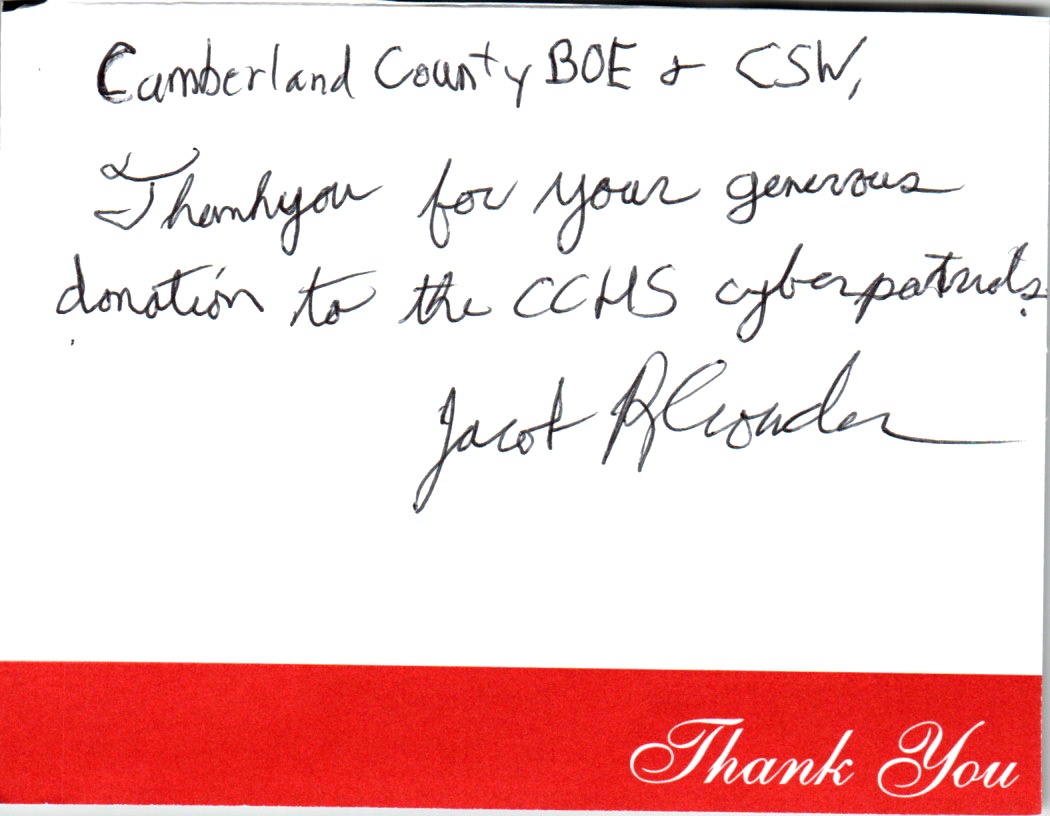 Cumberland County BOE & CSW,
Thankyou for your generous
donation to the CCHS cyberpatriots.
Jacob
Thank You